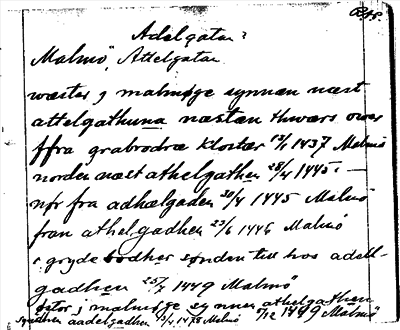 Adelgatan?
Malmö, Attelgatan
wæster j malmöge synnan næst
attelgathuna næstæn thwærs ower
ffra grabrodræ kloster 13/1 1437 Malmö
norden næst athelgathen 28/4 1445. —
nør fra adhælgaden 30/4 1445 Malmö
fran athelgadhen 23/6 1446 Malmö
i grydebodher sønden till hos adell-
gadhen 25/7 1449 Malmö
øster j malmøge synnen athelgathen
9/12 1499 Malmö
synnen aadelgadhen 13/4 1478 Malmö